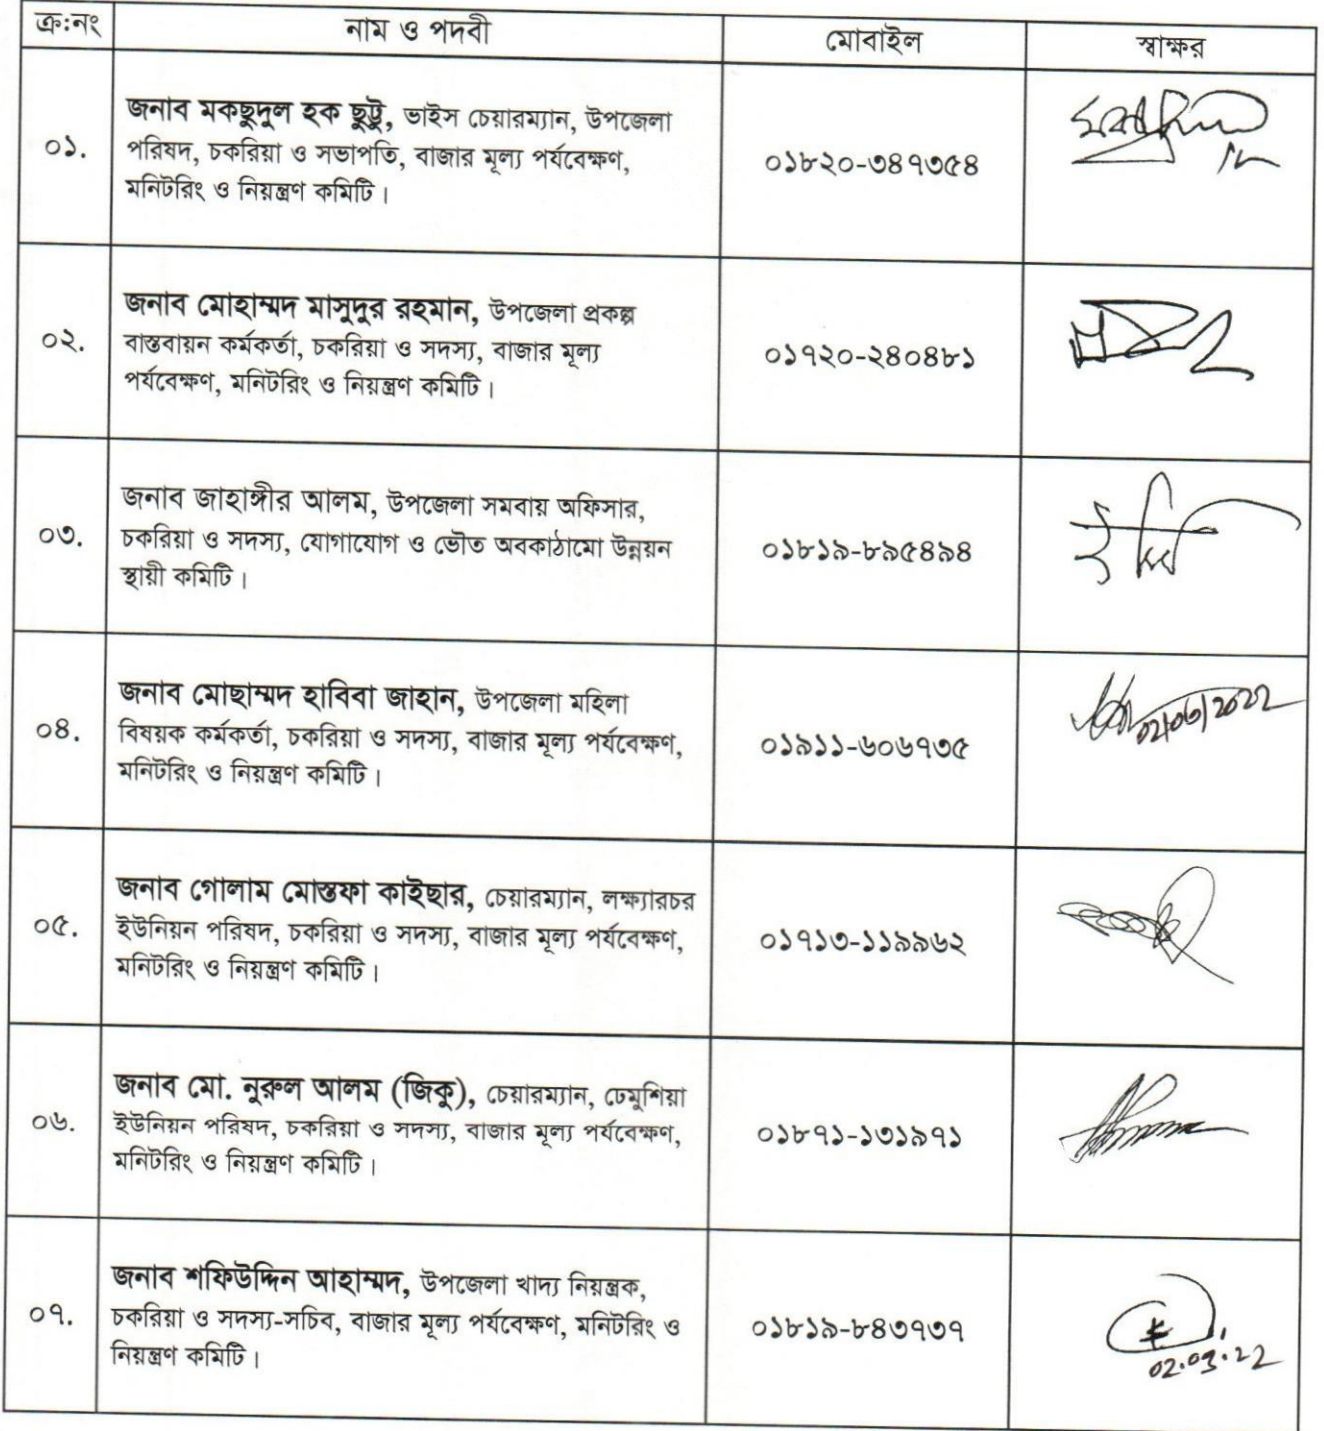 ক্র:নং নাম ও পদবী মোবাইল স্বাক্ষর
০১. জনাব মকছুদুল হক ছুট্টু, ভাইস চেয়ারম্যান, উপজেলা
পরিষদ, চকরিয়া ও সভাপতি, বাজার মূল্য পর্যবেক্ষণ,
মনিটরিং ও নিয়ন্ত্রণ কমিটি।
০১৮২০-৩৪৭৩৫৪
০২. জনাব মোহাম্মদ মাসুদুর রহমান, উপজেলা প্রকল্প
বাস্তবায়ন কর্মকর্তা, চকরিয়া ও সদস্য, বাজার মূল্য
পর্যবেক্ষণ, মনিটরিং ও নিয়ন্ত্রণ কমিটি।
০১৭২০-২৪০৪৮১
০৩. জনাব জাহাঙ্গীর আলম, উপজেলা সমবায় অফিসার,
চকরিয়া ও সদস্য, যোগাযোগ ও ভৌত অবকাঠামো উন্নয়ন
স্থায়ী কমিটি।
০১৮১৯-৮৯৫৪৯৪
০৪. জনাব মোছাম্মদ হাবিবা জাহান, উপজেলা মহিলা
বিষয়ক কর্মকর্তা, চকরিয়া ও সদস্য, বাজার মূল্য পর্যবেক্ষণ,
মনিটরিং ও নিয়ন্ত্রণ কমিটি।
০১৯১১-৬০৬৭৩৫
০৫. জনাব গোলাম মোস্তফা কাইছার, চেয়ারম্যান, লক্ষ্যারচর
ইউনিয়ন পরিষদ, চকরিয়া ও সদস্য, বাজার মূল্য পর্যবেক্ষণ,
মনিটরিং ও নিয়ন্ত্রণ কমিটি।
০১৭১৩-১১৯৯৬২
০৬. জনাব মো. নুরুল আলম (জিকু), চেয়ারম্যান, ঢেমুশিয়া
ইউনিয়ন পরিষদ, চকরিয়া ও সদস্য, বাজার মূল্য পর্যবেক্ষণ,
মনিটরিং ও নিয়ন্ত্রণ কমিটি।
০১৮৭১-১৩১৯৭১
০৭. জনাব শফিউদ্দিন আহাম্মদ, উপজেলা খাদ্য নিয়ন্ত্রক,
চকরিয়া ও সদস্য-সচিব, বাজার মূল্য পর্যবেক্ষণ, মনিটরিং ও
নিয়ন্ত্রণ কমিটি।
০১৮১৯-৮৪৩৭৩৭
02.03.22